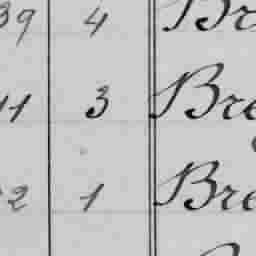 39 4 Br
11 3 Bre
2 1 Bre